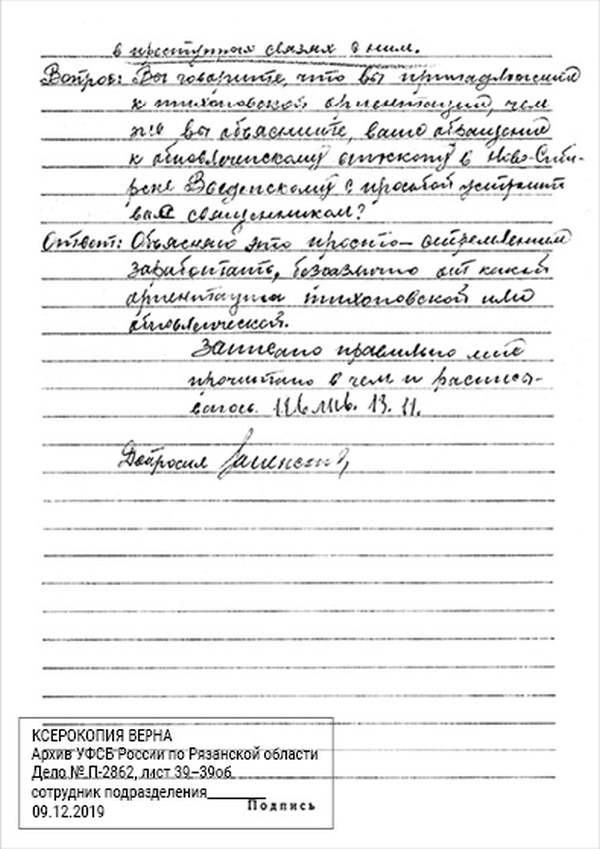 в преступных связях с ним.
Вопрос: Вы говорите, что вы принадлежите
к тихоновской ориентации, чем
же вы объясните, ваше обращение
к обновленческому епископу в Ново-Сиби-
рске Введенскому с просьбой устроить
вас священником?
Ответ: Объясняю это просто – стремлением
заработать, безразлично от какой
ориентации тихоновской или
обновленческой.
Записано правильно мне
прочитано в чем и расписы-
ваюсь.
Допросил
КСЕРОКОПИЯ ВЕРНА
Архив УФСБ России по Рязанской области
Дело № П-2862, лист 39–39об
сотрудник подразделения________
09.12.2019
Подпись